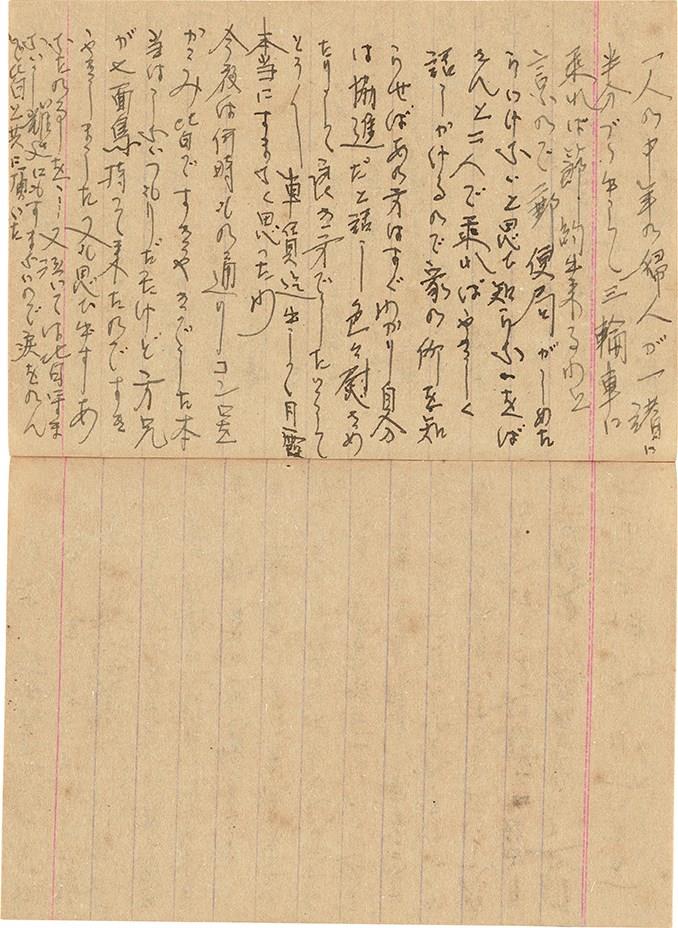 一人の中年の婦人が一諸に
半分づゝ出して三輪車に
乘れば節約出来るわと
言ふので郵便局がしめた
らいけないと思ひ知らない
さんと二人で乘ればやさしく
話しかけるので家の所を知
らせばあの方はすぐわかり自分
は協進だと話し色々慰さめ
たりして良き方でしたいゝって
とう〱車賃迄出して
本当にすまなく思ったわ
今夜は何時もの通りコン
かこみ皆ですきやきでした本
当はしないつもりだったけど方兄
が七面鳥持って来たのですき
やきしました又も思ひ出すあ
なたの事を
皆と共に頂いた